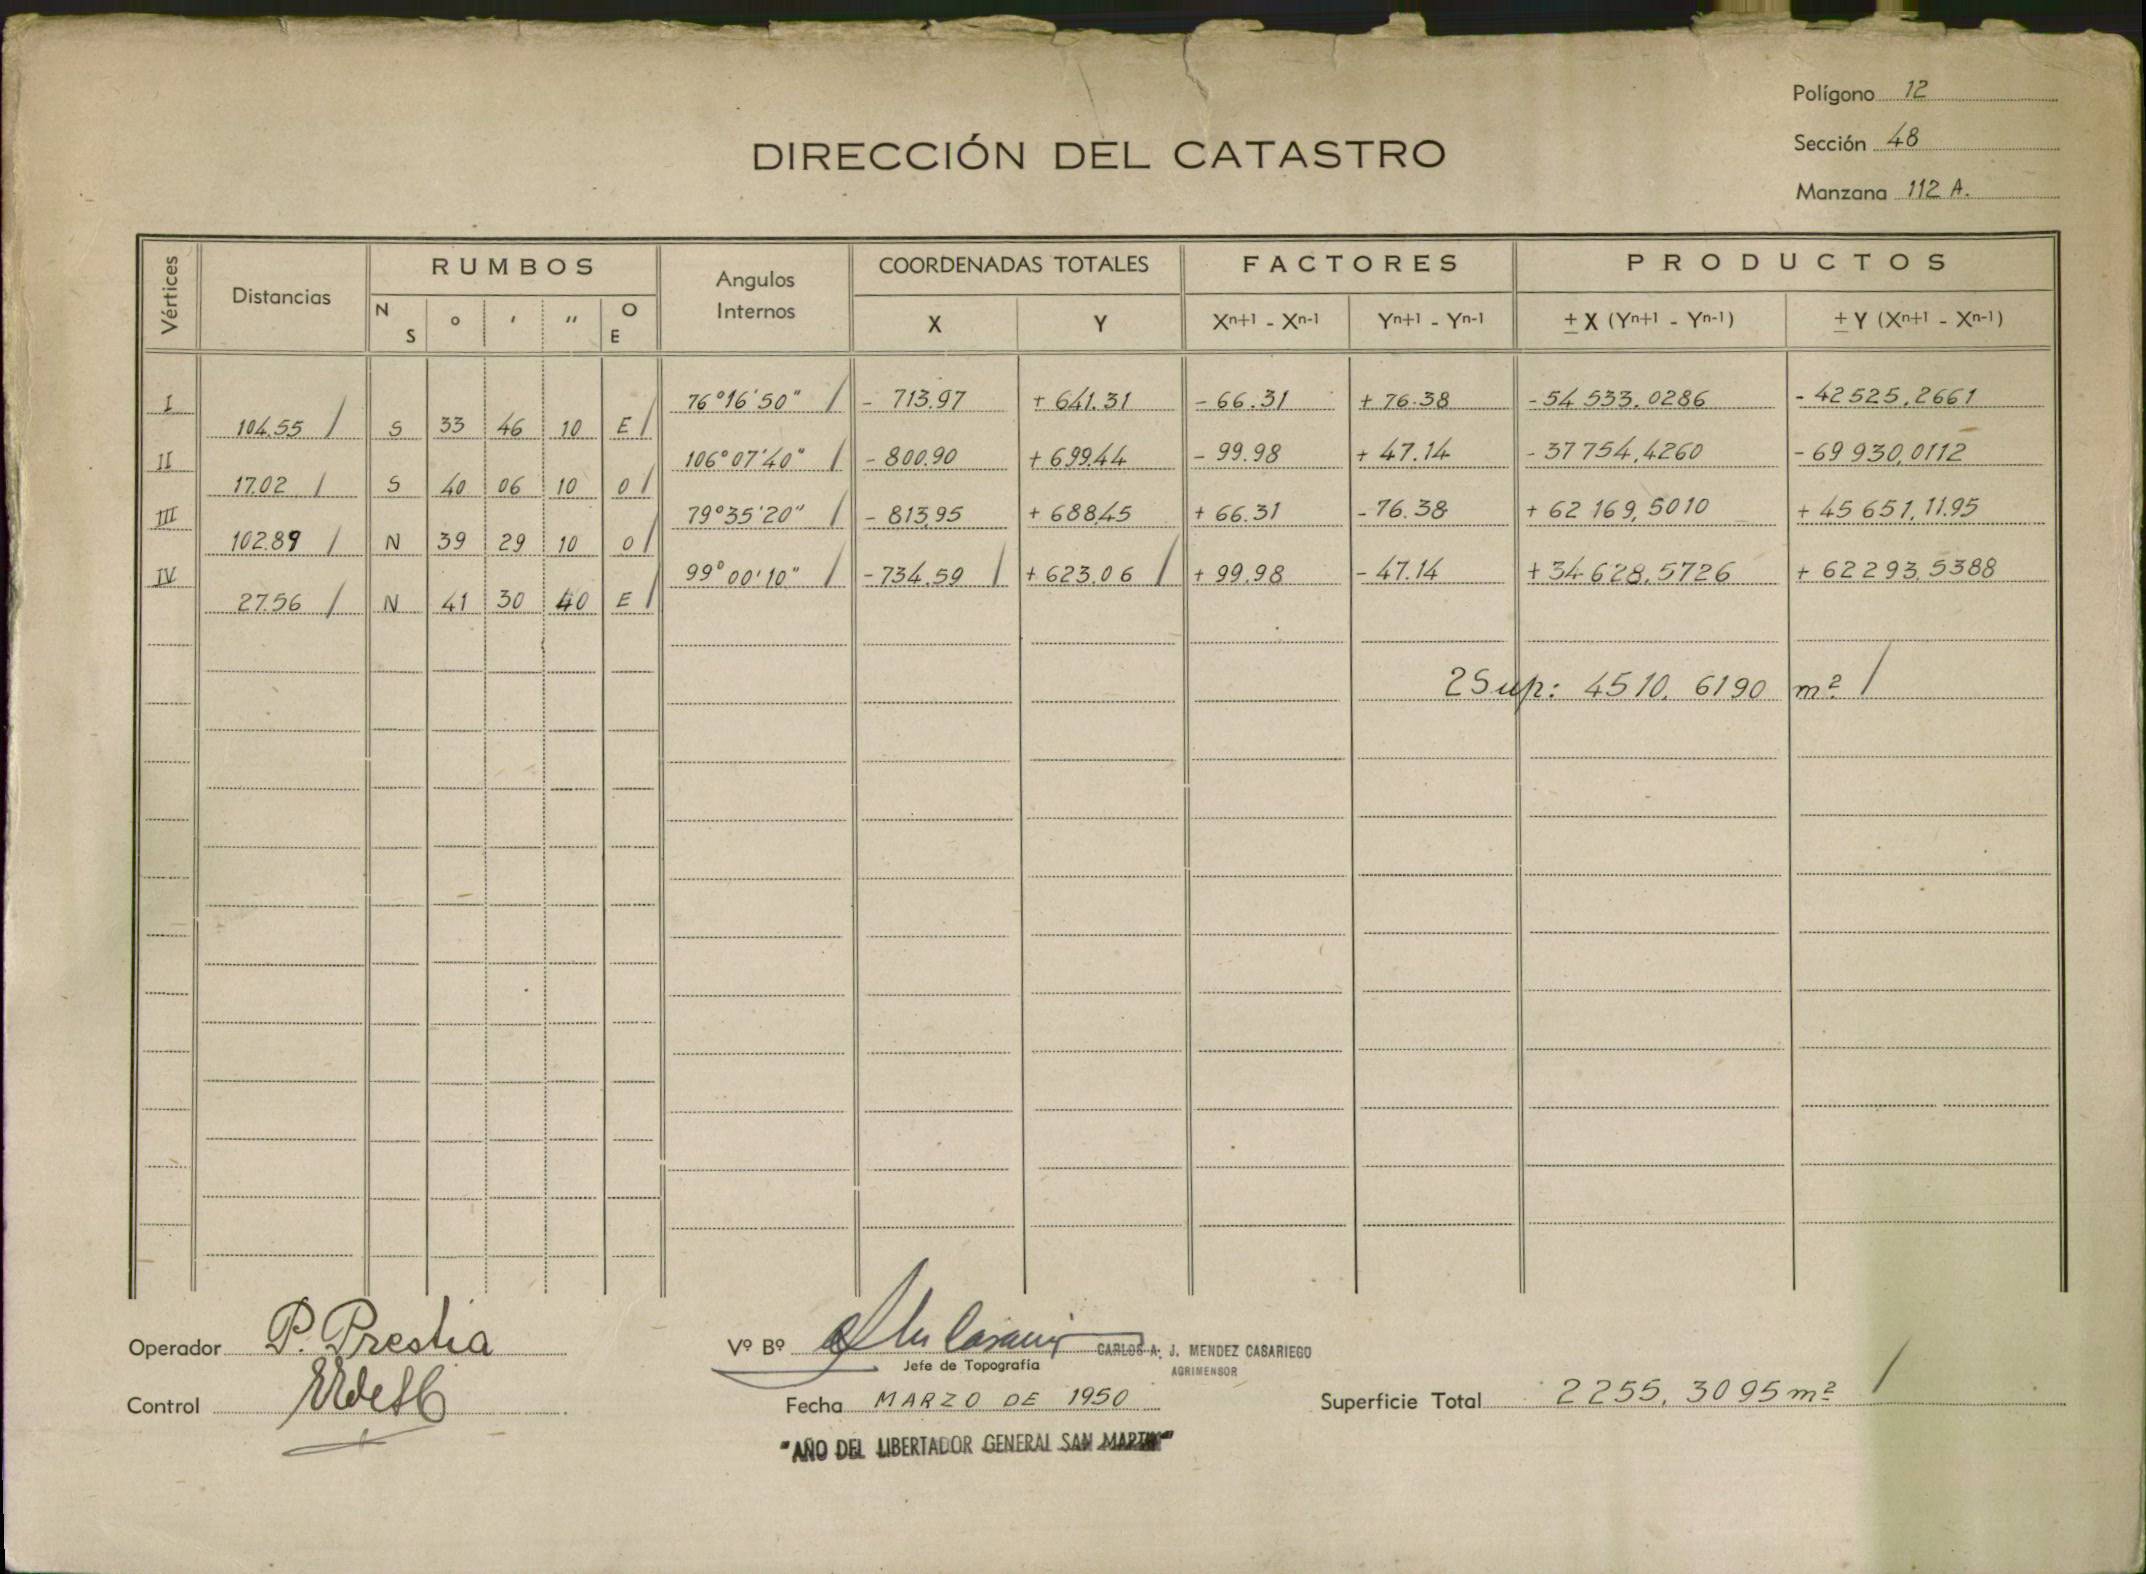 Polígono 12
Sección 48
Manzana 112 A.
DIRECCIÓN DEL CATASTRO
Vértices Distancias RUMBOS Angulos Internos COORDENADAS TOTALES FACTORES PRODUCTOS
N S ° ' " O E X Y Xn+1 - Xn-1 Yn+1 - Yn-1 ± X (Yn+1 - Yn-1) ± Y (Xn+1 - Xn-1)
I 76°16'50" - 713.97 + 641.31 - 66.31 + 76.38 - 54 533.0286 - 42525,2661
104.55 S 33 46 10 E
II 106°07'40" - 800.90 + 699.44 - 99.98 + 47.14 - 37 754,4260 - 69 930,0112
17.02 S 40 06 10 O
III 79°35'20" - 813,95 + 688,45 + 66.31 - 76.38 + 62 169,5010 + 45 651,1195
102.89 N 39 29 10 O
IV 99°00'10" - 734.59 + 623.06 + 99.98 - 47.14 + 34 628,5726 + 62293,5388
27.56 N 41 30 40 E
2 Sup: 4510, 6190 m²
Operador P. Prestia
Vº Bº CARLOS A. J. MENDEZ CASARIEGO
Jefe de Topografía AGRIMENSOR
Control
Fecha MARZO DE 1950
Superficie Total 2255, 3095 m²
"AÑO DEL LIBERTADOR GENERAL SAN MARTIN"